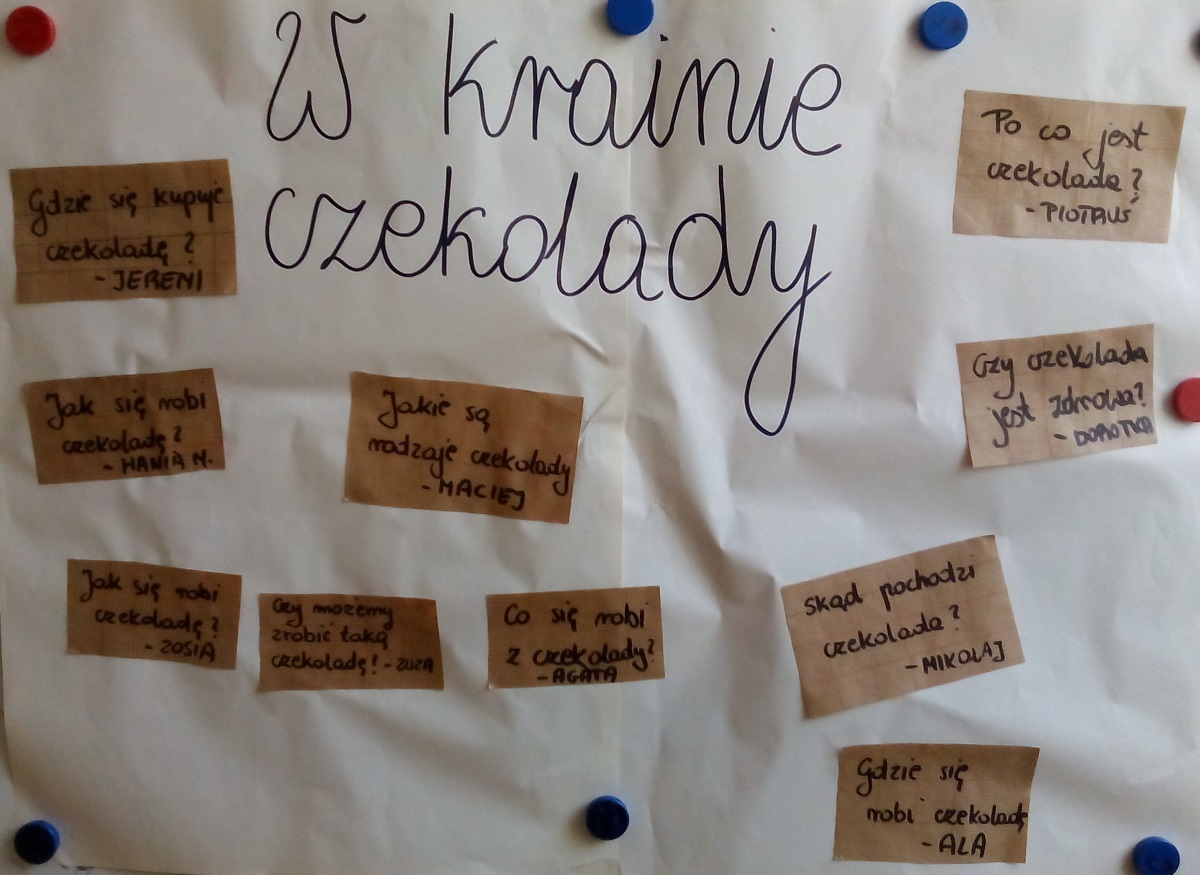 W krainie
czekolady
Gdzie się kupuje
czekoladę?
- JEREMI
Po co jest
czekolada?
- PIOTRUŚ
Jak się robi
czekoladę?
- HANIA M.
Jakie są
rodzaje czekolady
- MACIEJ
Czy czekolada
jest zdrowa?
- DOROTKA
Jak się robi
czekoladę?
- ZOSIA
Czy możemy
zrobić taką
czekoladę! - ZUZA
Co się robi
z czekolady?
- AGATA
skąd pochodzi
czekolada?
- MIKOŁAJ
Gdzie się
robi czekoladę
- ALA